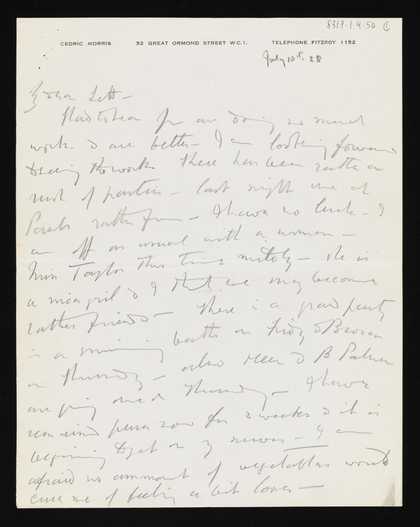 8317.1.4.50
CEDRIC MORRIS 32 GREAT ORMOND STREET W.C.1. TELEPHONE FITZROY 1152
July 10th 28
My dear Lett –
Glad to hear you are doing so much
work & are better – I am looking forward
to seeing the work – There has been rather a
rush of parties – last night one at
rather fun – I have no luck – I
am off as usual with a woman –
Miss Taylor this time – she is
a nice girl & I think we may become
rather friends – There is a grand party
in a swimming baths on Friday &
on Thursday – also &
are giving one on Thursday – I have
remained for 2 weeks & it is
beginning to get on my nerves – I am
afraid no ammount of vegetables would
cure me of feeling a bit –